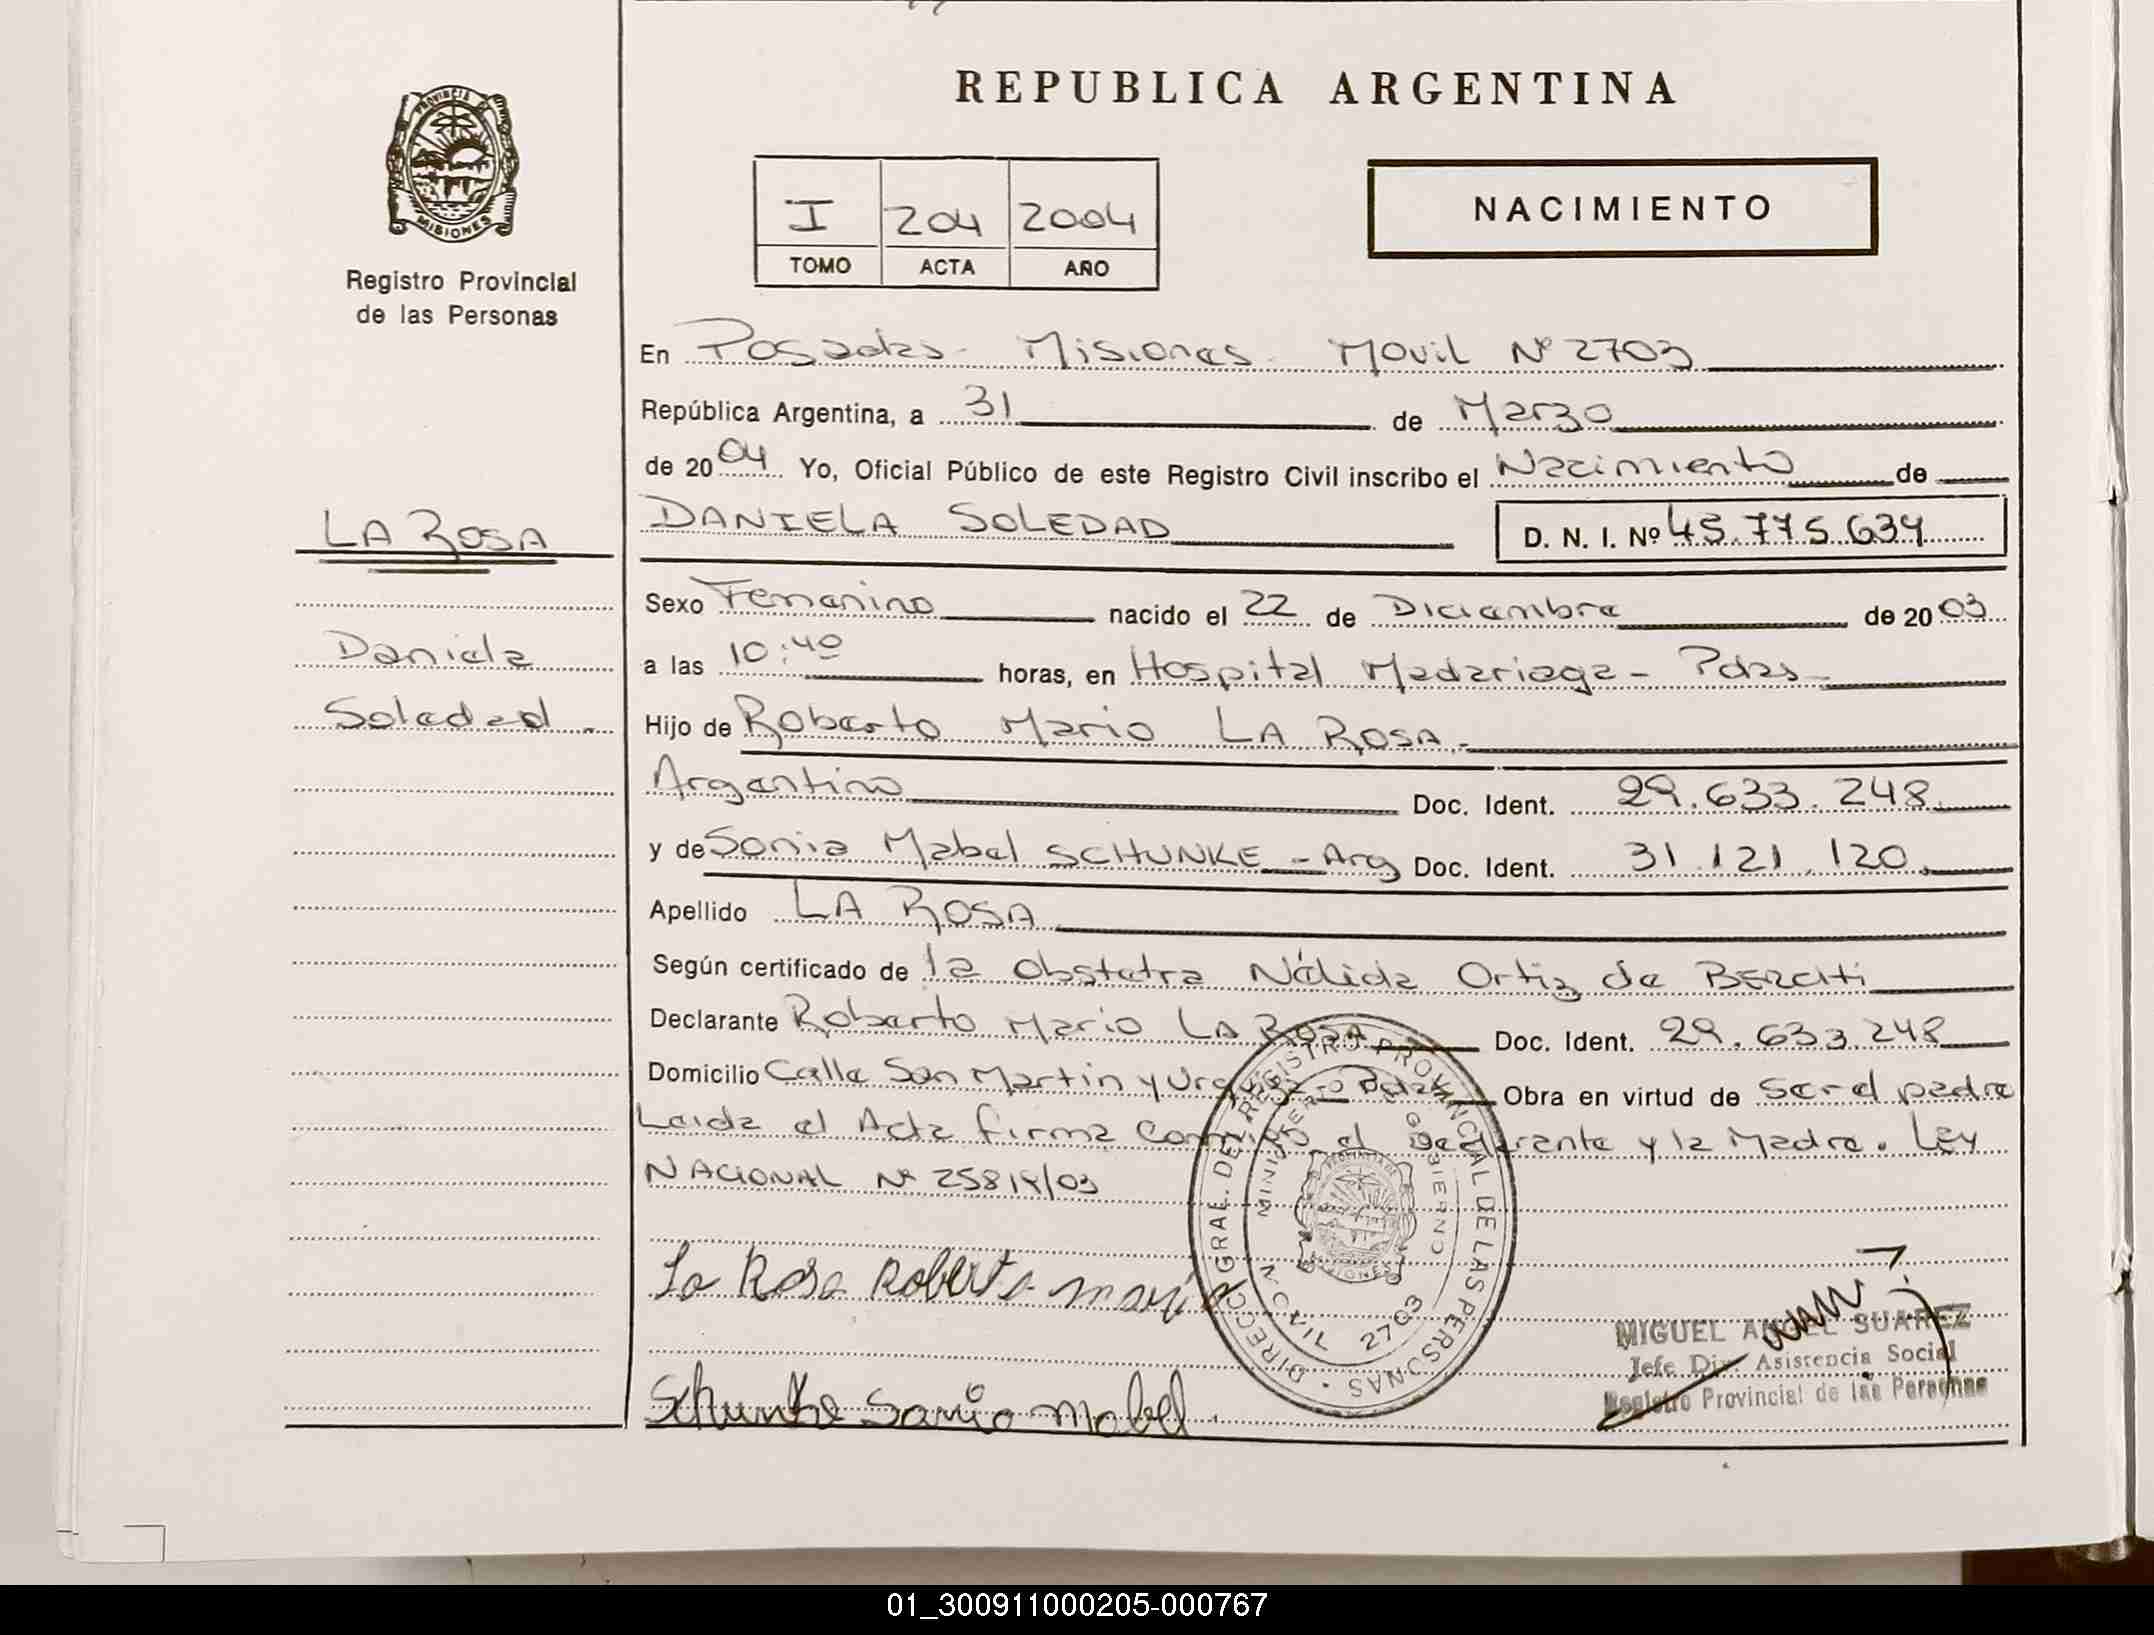 REPUBLICA ARGENTINA
PROVINCIA DE
MISIONES
Registro Provincial
de las Personas
I 204 2004
TOMO ACTA AÑO
NACIMIENTO
En Posadas - Misiones - Movil Nº 2703
República Argentina, a 31 de Marzo
de 2004 Yo, Oficial Público de este Registro Civil inscribo el Nacimiento de
LA ROSA
DANIELA SOLEDAD D. N. I. Nº 45.775.639
Sexo Femenino nacido el 22 de Diciembre de 2003
Daniela
a las 10:40 horas, en Hospital Madariaga - Pdas -
Soledad.-
Hijo de Roberto Mario LA ROSA.-
Argentino Doc. Ident. 29.633.248
y de Sonia Mabel SCHUNKE - Arg Doc. Ident. 31.121.120.
Apellido LA ROSA
Según certificado de la obstetra Nélida Ortiz de
Declarante Roberto Mario LA ROSA Doc. Ident. 29.633.248
Domicilio Calle San Martin y Pdas Obra en virtud de ser el padre
Leida el Acta firma conmigo el Declarante y la Madre. Ley
NACIONAL Nº 25819/03
DIRECC. GRAL. DE REGISTRO PROVINCIAL DE LAS PERSONAS
MINISTERIO DE GOBIERNO
MOVIL 2703
La Rosa Roberto mario
MIGUEL ANGEL SUAREZ
Jefe Div. Asistencia Social
Registro Provincial de las Personas
Schunke Sonia Mabel
01_300911000205-000767